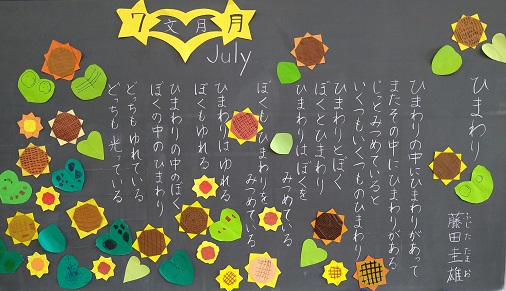 7 文月 月
July
ひまわり
藤田圭雄
ふじた たまお
ひまわりの中にひまわりがあって
またその中にひまわりがある
じっとみつめていると
いくつもいくつものひまわり
ひまわりとぼく
ぼくとひまわり
ひまわりはぼくを
みつめている
ぼくもひまわりを
みつめている
ひまわりはゆれる
ぼくもゆれる
ひまわりの中のぼく
ぼくの中のひまわり
どっちもゆれている
どっちも光っている